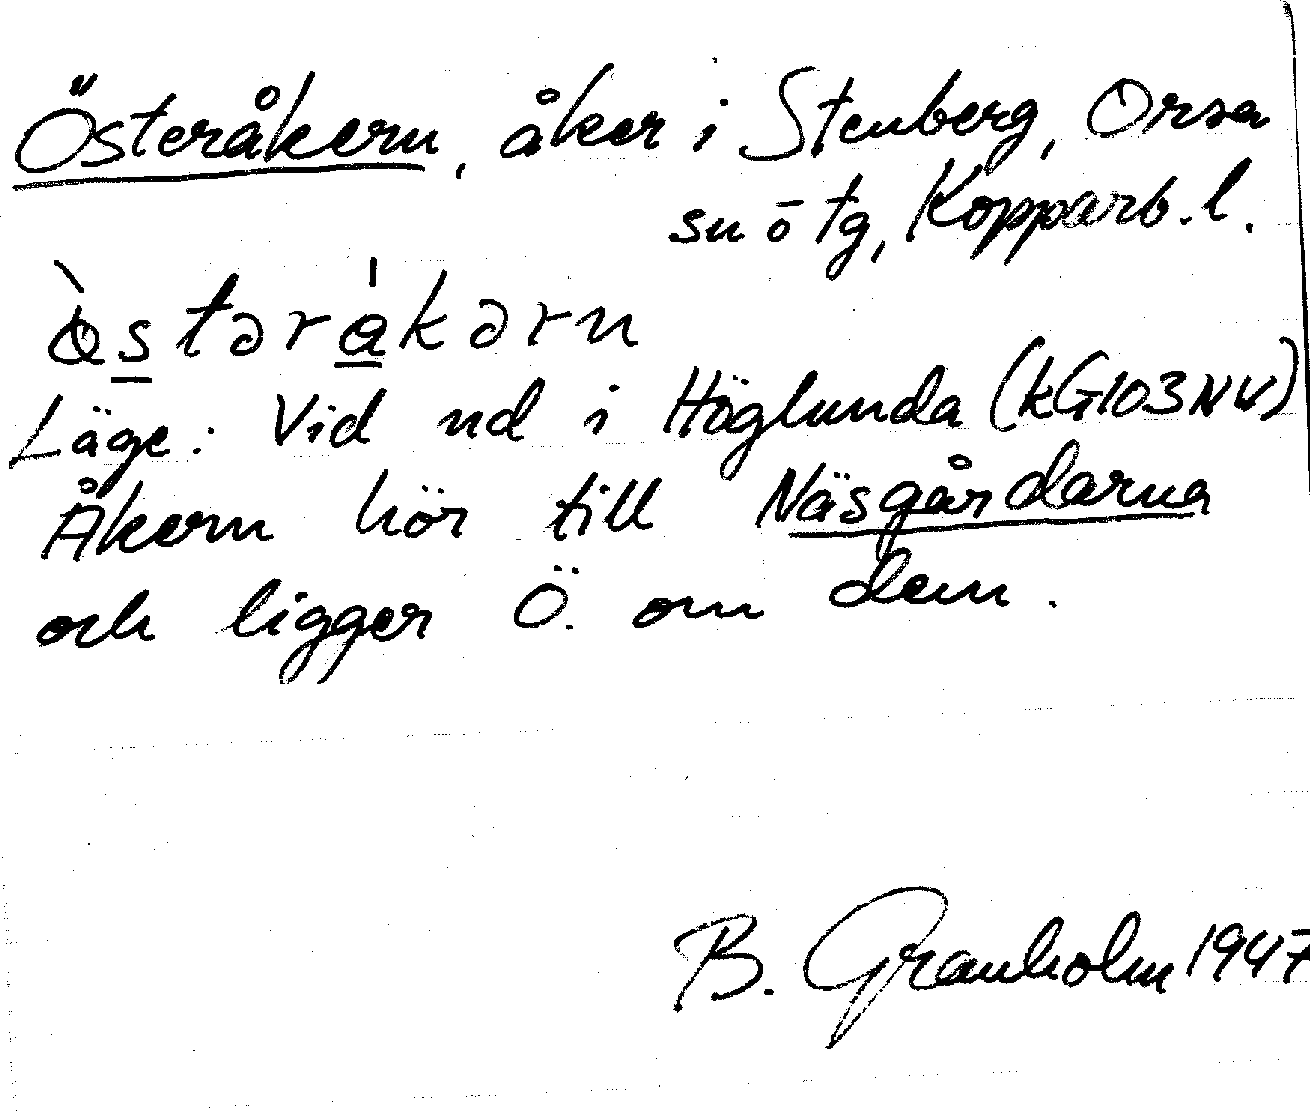 Österåkern, åker i Stenberg, Orsa
sn ö tg, Kopparb. l.
Läge: Vid nd i Höglunda (kG103NV)
Åkern hör till Näsgårdarna
och ligger Ö. om dem.
B. Granholm 1947